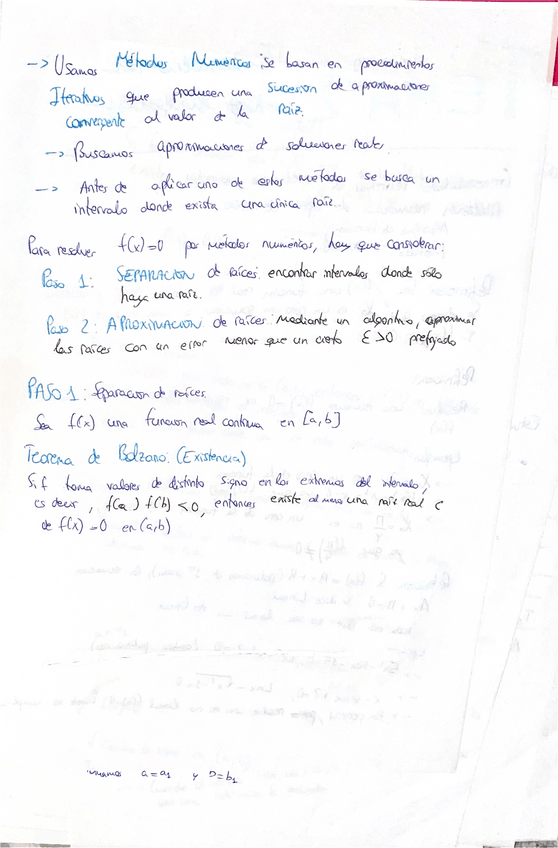 -> Usamos Métodos Numéricos se basan en procedimientos
Iterativos que producen una sucesion de aproximaciones
convergente al valor de la raíz.
-> Buscamos aproximaciones de soluciones reales
-> Antes de aplicar uno de estos métodos se busca un
intervalo donde exista una única raíz.
Para resolver f(x)=0 por métodos numéricos, hay que considerar:
Paso 1: SEPARACION de raíces: encontrar intervalos donde solo
haya una raíz.
Paso 2: APROXIMACION de raíces: Mediante un algoritmo, aproximar
las raíces con un error menor que un cierto ε>0 prefijado
PASO 1: Separacion de raíces.
Sea f(x) una funcion real continua en [a,b]
Teorema de Bolzano: (Existencia)
Si f toma valores de distinto signo en los extremos del intervalo,
es decir, f(a) f(b) <0, entonces existe al menos una raiz real c
de f(x)=0 en (a,b)
a=a1 y b=b1